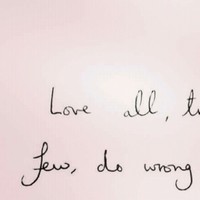 Love all,
few, do wrong